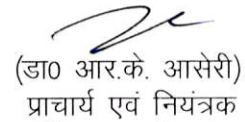 (डा० आर.के. आसेरी)
प्राचार्य एवं नियंत्रक